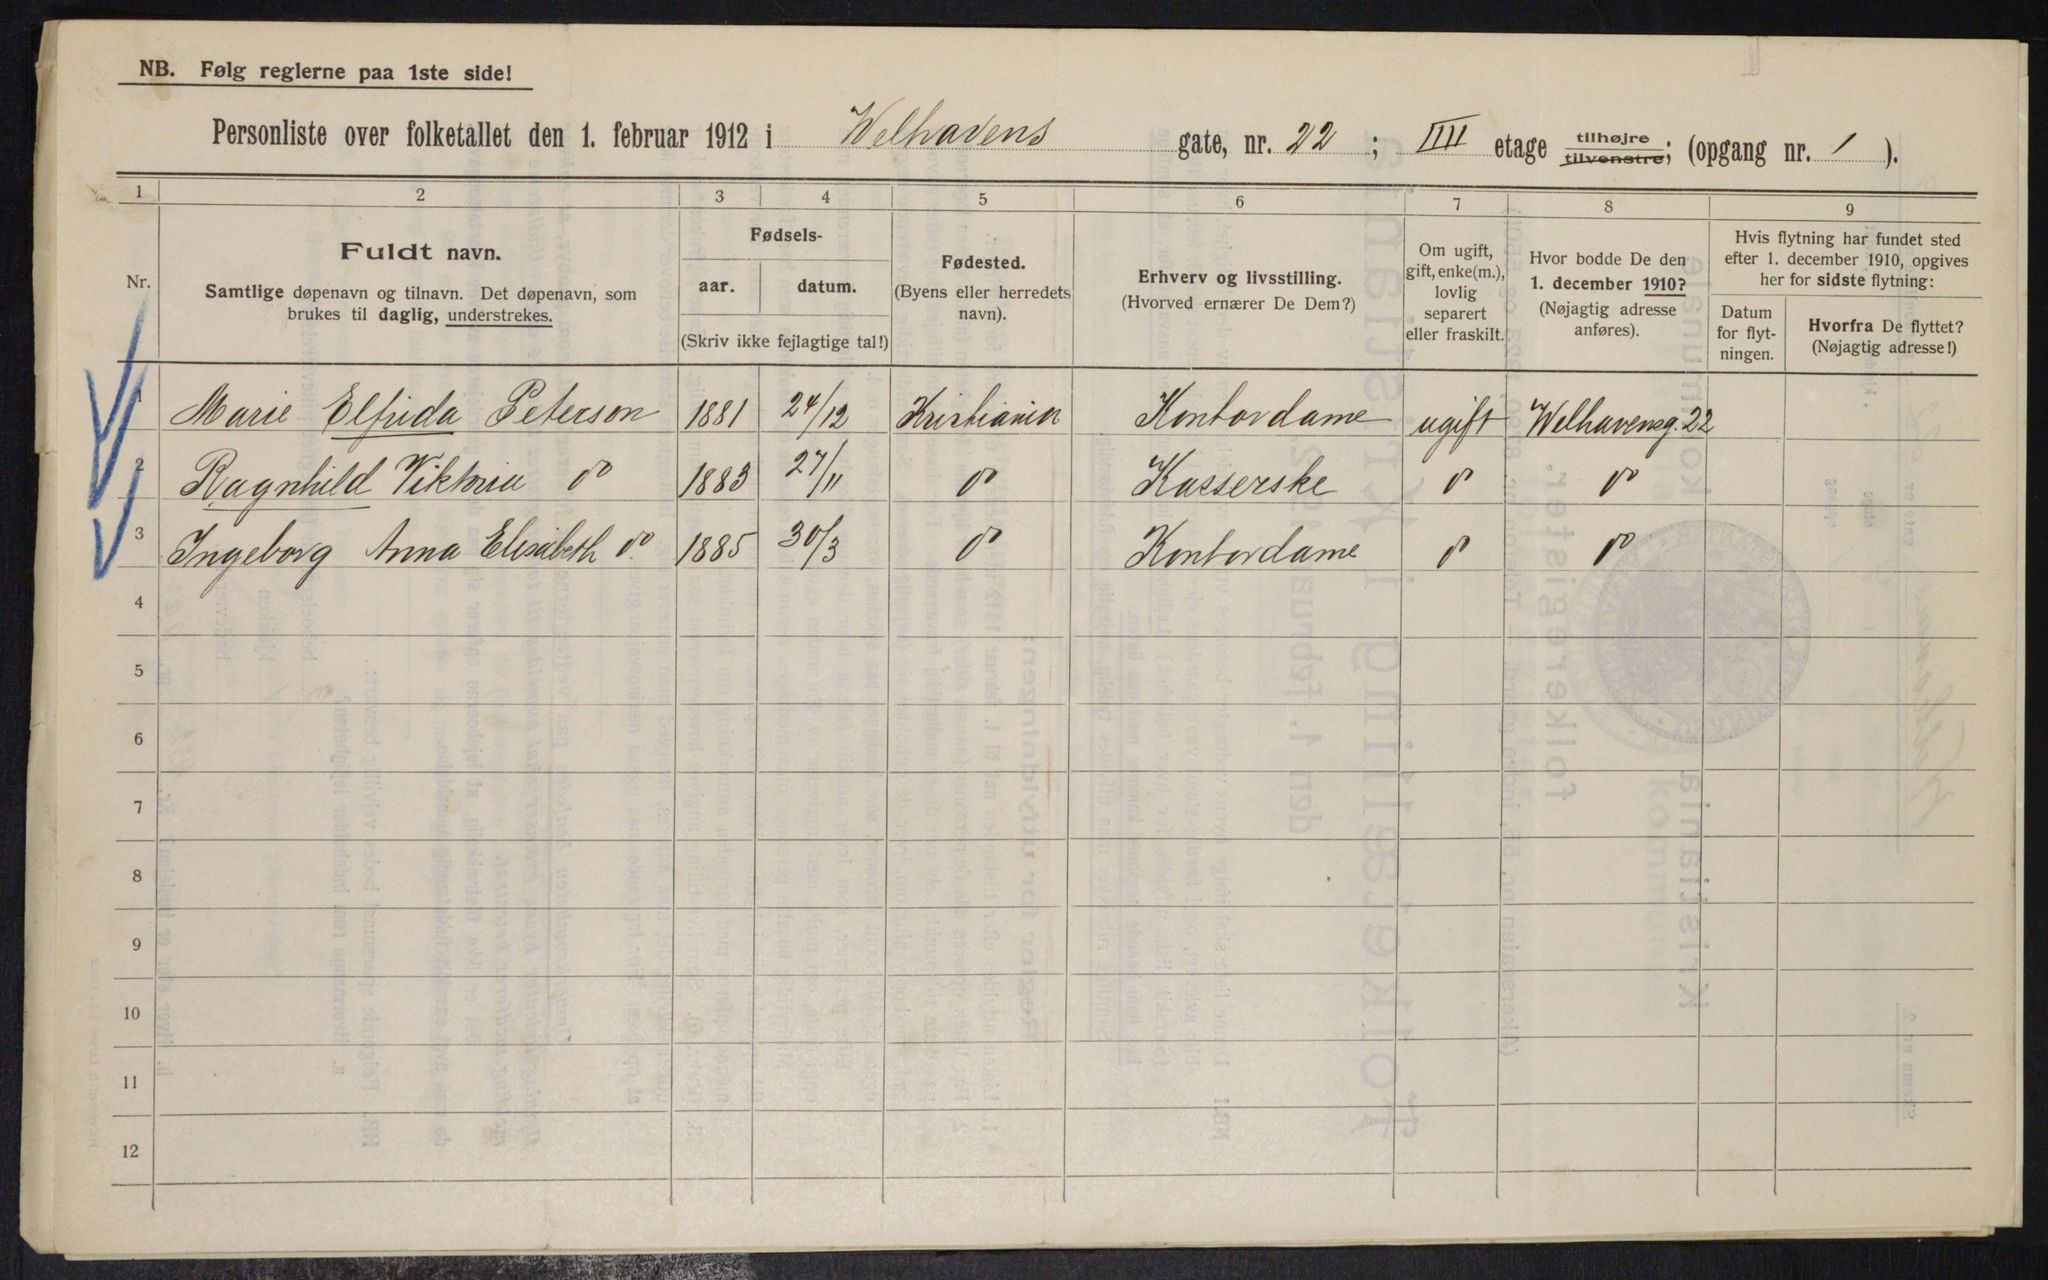 NB. Følg reglerne paa 1ste side!
Personliste over folketallet den 1. februar 1912 i Welhavens gate, nr. 22; IIII etage tilhøjre tilvenstre; (opgang nr. 1).
1 2 3 4 5 6 7 8 9
Nr.
Fuldt navn.
Samtlige døpenavn og tilnavn. Det døpenavn, som
brukes til daglig, understrekes.
Fødsels-
aar. datum.
(Skriv ikke fejlagtige tal!)
Fødested.
(Byens eller herredets
navn).
Erhverv og livsstilling.
(Hvorved ernærer De Dem?)
Om ugift,
gift, enke(m.),
lovlig
separert
eller fraskilt.
Hvor bodde De den
1. december 1910?
(Nøjagtig adresse
anføres).
Hvis flytning har fundet sted
efter 1. december 1910, opgives
her for sidste flytning:
Datum
for flyt-
ningen.
Hvorfra De flyttet?
(Nøjagtig adresse!)
1 Marie Elfrida Peterson 1881 24/12 Kristiania Kontordame ugift Welhavensg. 22
2 Ragnhild Viktoria do 1883 27/11 do Kasserske do do
3 Ingeborg Anna Elisabeth do 1885 30/3 do Kontordame do do
4
5
6
7
8
9
10
11
12